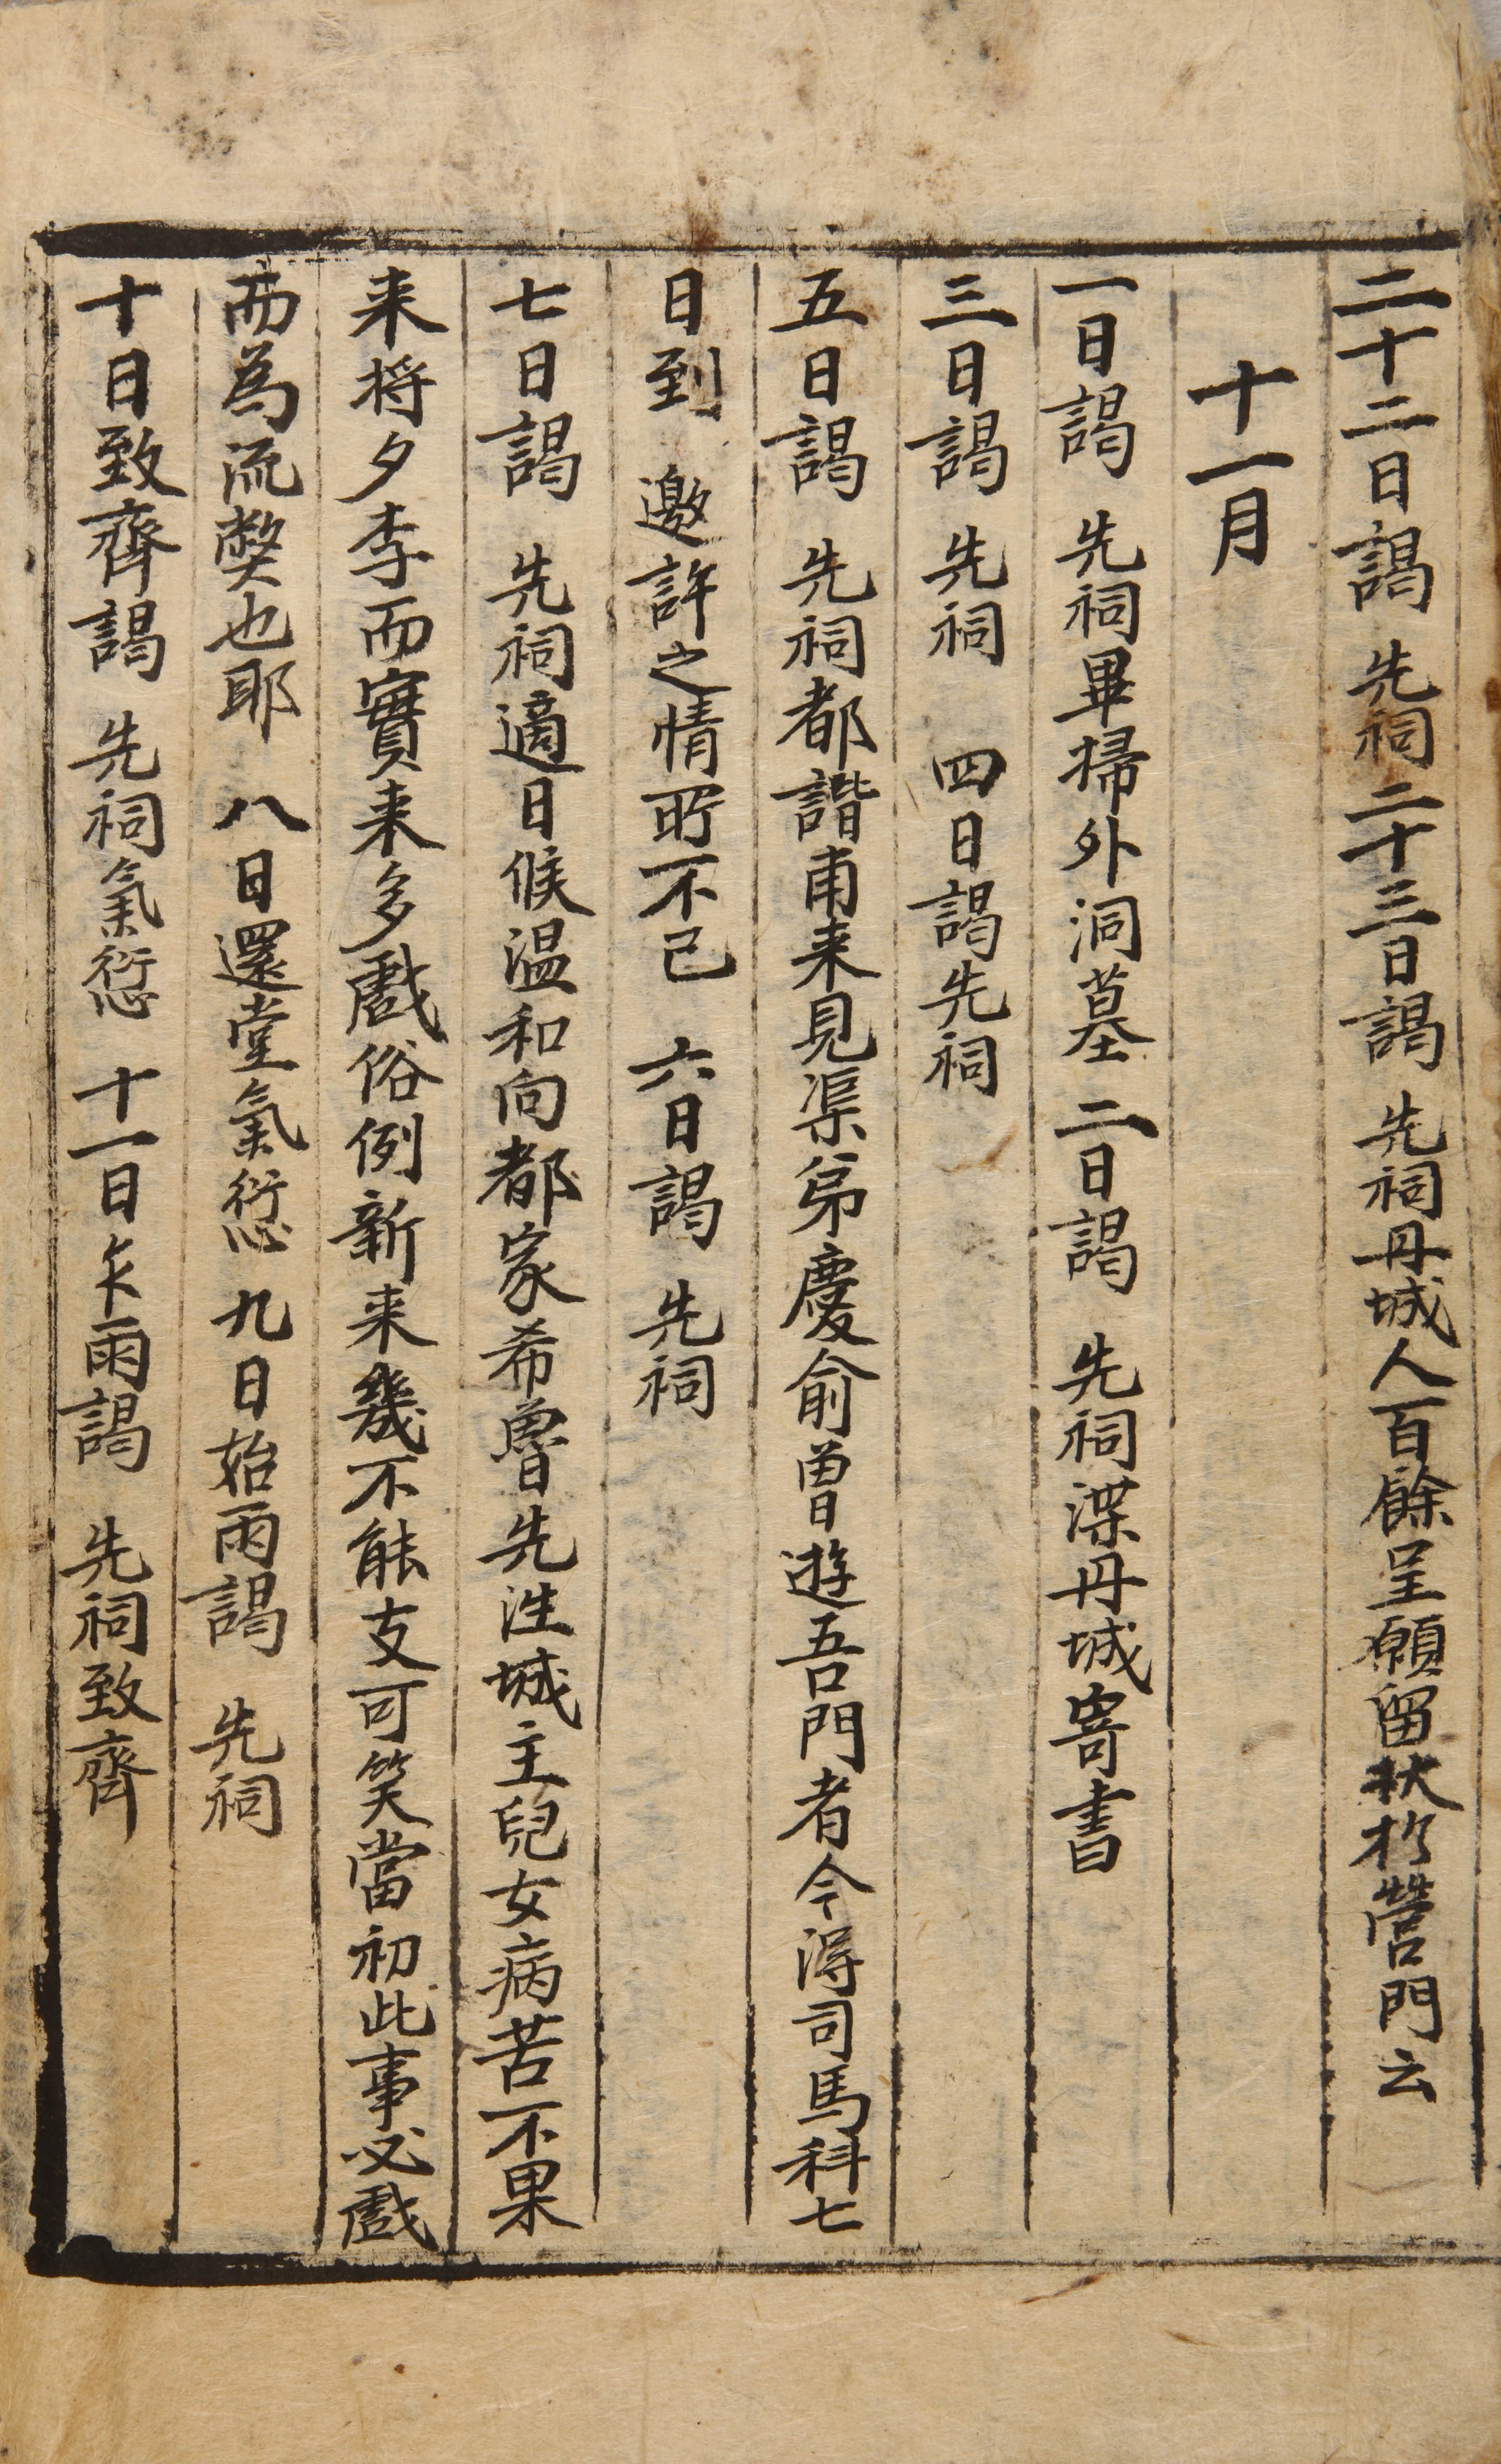 二十二日謁 先祠二十三日謁 先祠丹城人百餘呈願留狀扵營門云
十一月
一日謁 先祠畢掃外洞墓 二日謁 先祠渫丹城寄書
三日謁 先祠 四日謁先祠
五日謁 先祠都諧甫来見渠弟慶俞曽遊吾門者今得司馬科七
日到 邀許之情所不已 六日謁 先祠
七日謁 先祠適日候温和向都家希魯先泩城主兒女病苦不果
来将夕李而實来多戱俗例新来幾不能支可笑當初此事必戱
而為流獘也耶 八日還堂氣愆 九日始雨謁 先祠
十日致齊謁 先祠氣愆 十一日乍雨謁 先祠致齊